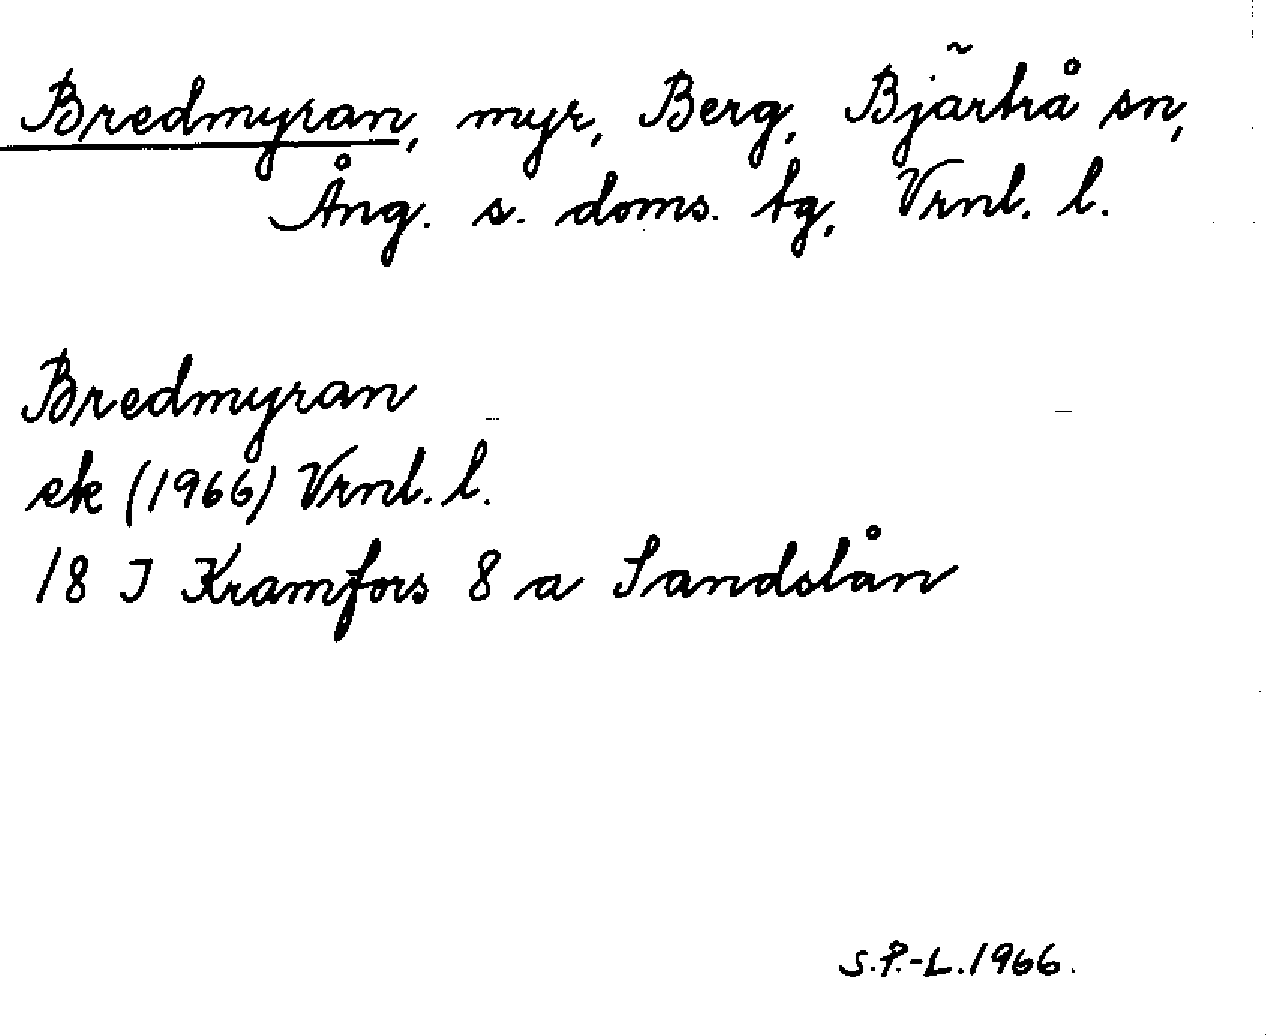 Bredmyran, myr, Berg, Bjärtrå sn,
Ång. s. doms. tg, Vrnl. l.
Bredmyran
ek (1966) Vrnl. l.
18 I Kramfors 8 a Sandslån
S.P.-L. 1966.